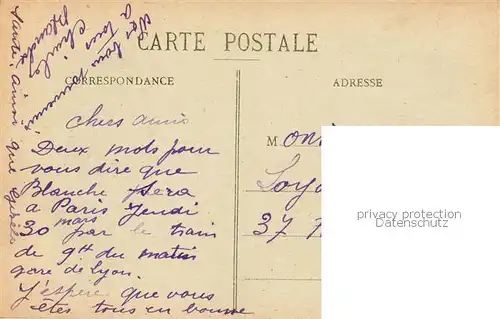 CARTE POSTALE
CORRESPONDANCE
ADRESSE
Chers amis
Deux mots pour
vous dire que
Blanche sera
à Paris Jeudi
30 mars par le train
de 9h du matin
gare de Lyon.
J'espère que vous
êtes tous en bonne
santé, ainsi que
bons souvenirs
à tous
M
37
privacy protection
Datenschutz